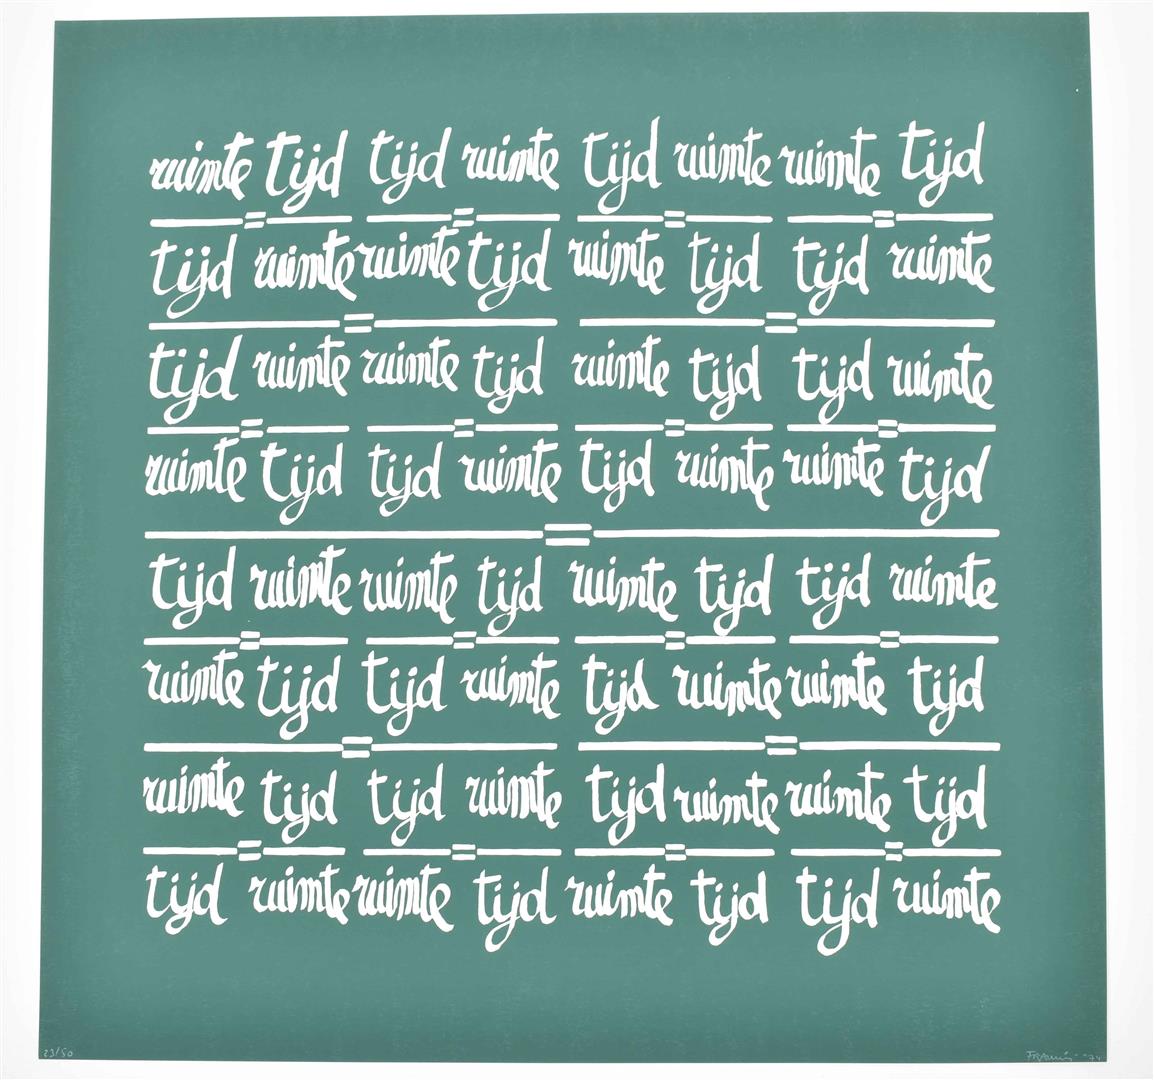 ruimte tijd tijd ruimte tijd ruimte ruimte tijd
= = = =
tijd ruimte ruimte tijd ruimte tijd tijd ruimte
= =
tijd ruimte ruimte tijd ruimte tijd tijd ruimte
= = = =
ruimte tijd tijd ruimte tijd ruimte ruimte tijd
=
tijd ruimte ruimte tijd ruimte tijd tijd ruimte
= = = =
ruimte tijd tijd ruimte tijd ruimte ruimte tijd
= =
ruimte tijd tijd ruimte tijd ruimte ruimte tijd
= = = =
tijd ruimte ruimte tijd ruimte tijd tijd ruimte
23/50